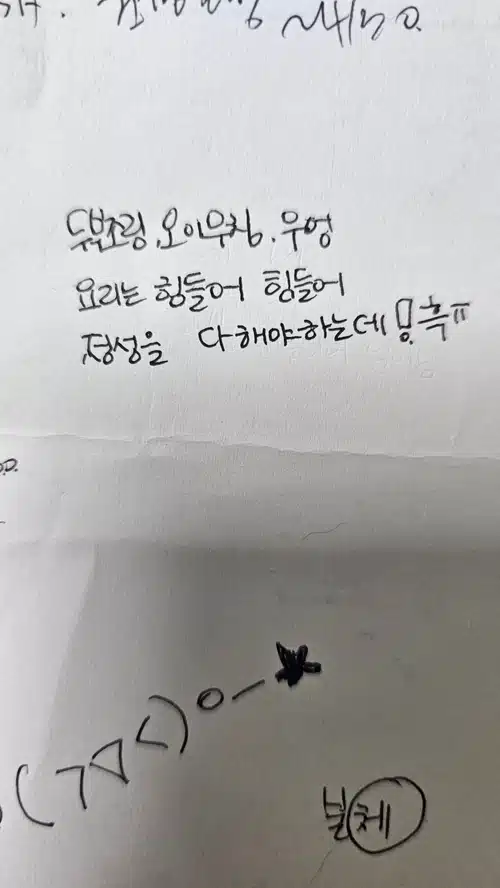 두부조림, 오이무침, 우엉
요리는 힘들어 힘들어
정성을 다해야하는데 흑ㅠ
불체